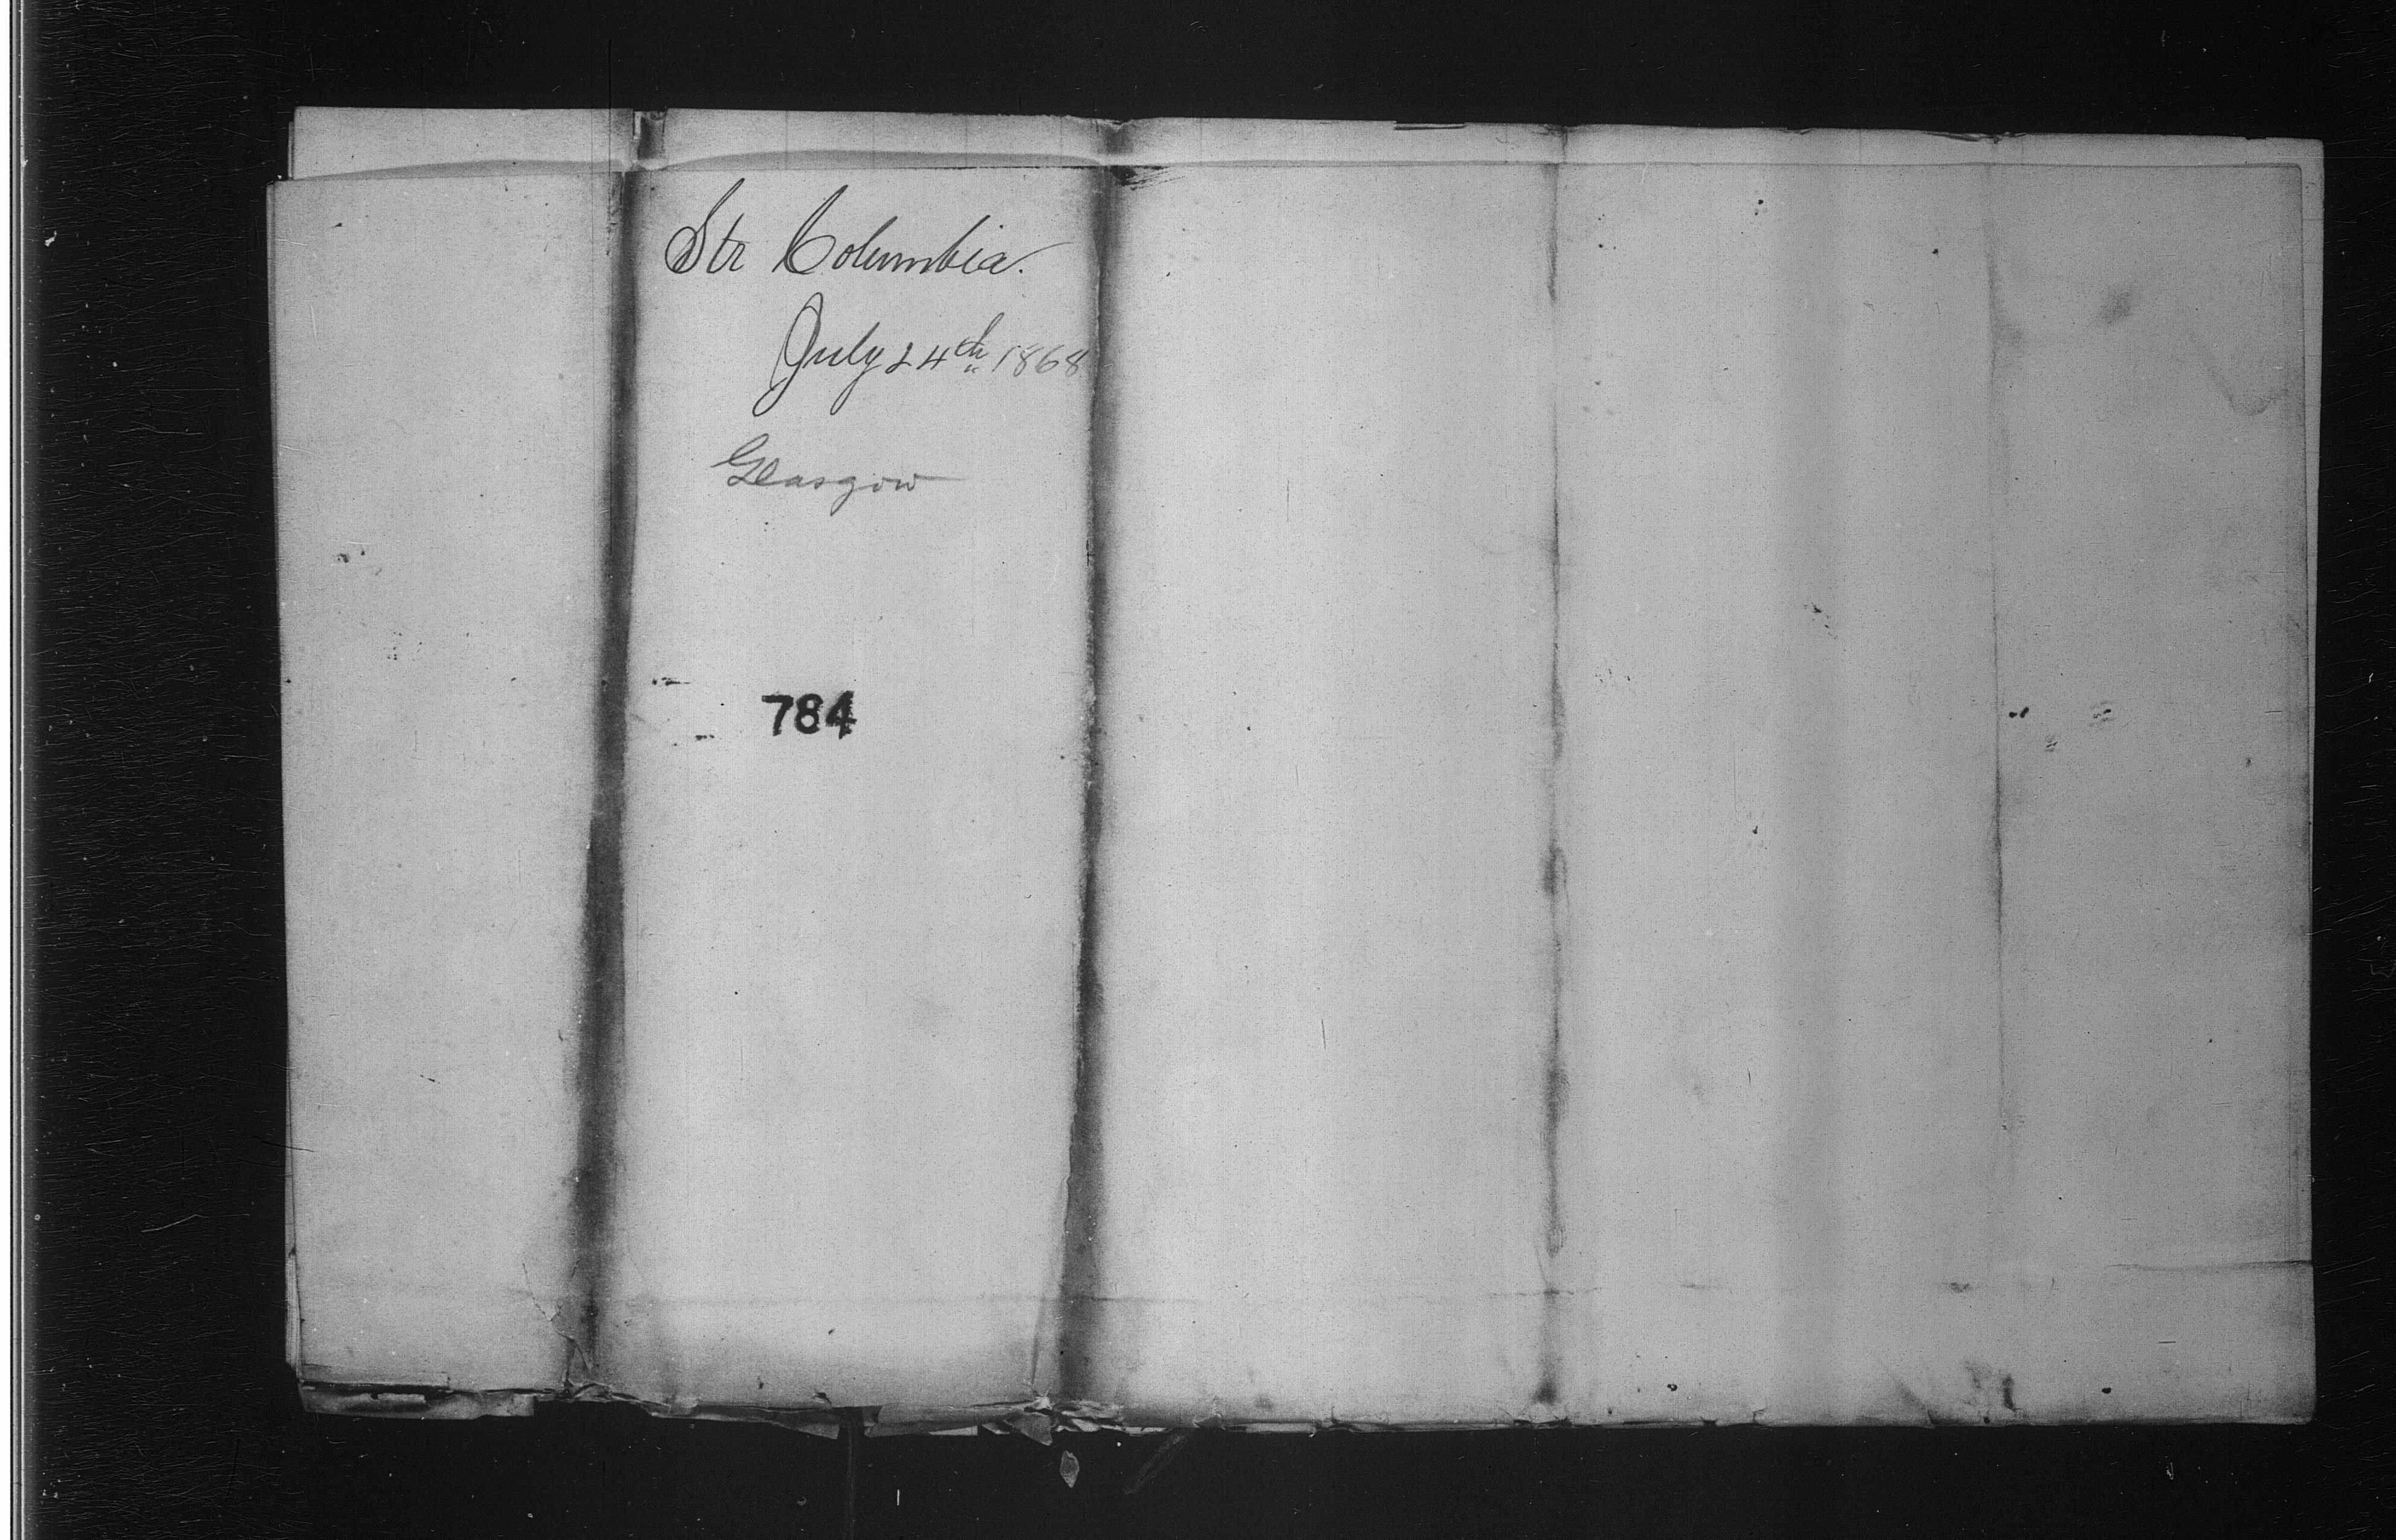 Str Columbia.
July 24th 1868
Glasgow
784